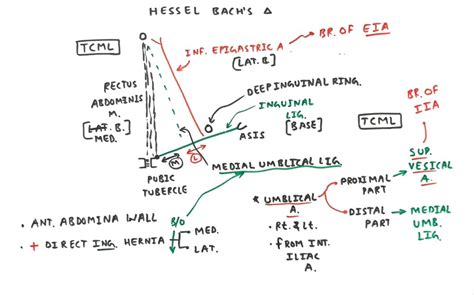 HESSEL BACH'S Δ
TCML
INF. EPIGASTRIC A
[LAT. B.]
BR. OF EIA
RECTUS
ABDOMINIS
M.
[LAT. B.]
MED.
DEEP INGUINAL RING.
INGUINAL
LIG.
[BASE]
ASIS
TCML
BR. OF
IIA
M
L
PUBIC
TUBERCLE
MEDIAL UMBLICAL LIG.
SUP.
VESICAL
A.
* UMBLICAL
A.
PROXIMAL
PART
DISTAL
PART
MEDIAL
UMB.
LIG.
• Rt. & Lt.
• from INT.
ILIAC
A.
• ANT. ABDOMINA WALL
B/O
• + DIRECT ING. HERNIA
MED.
LAT.